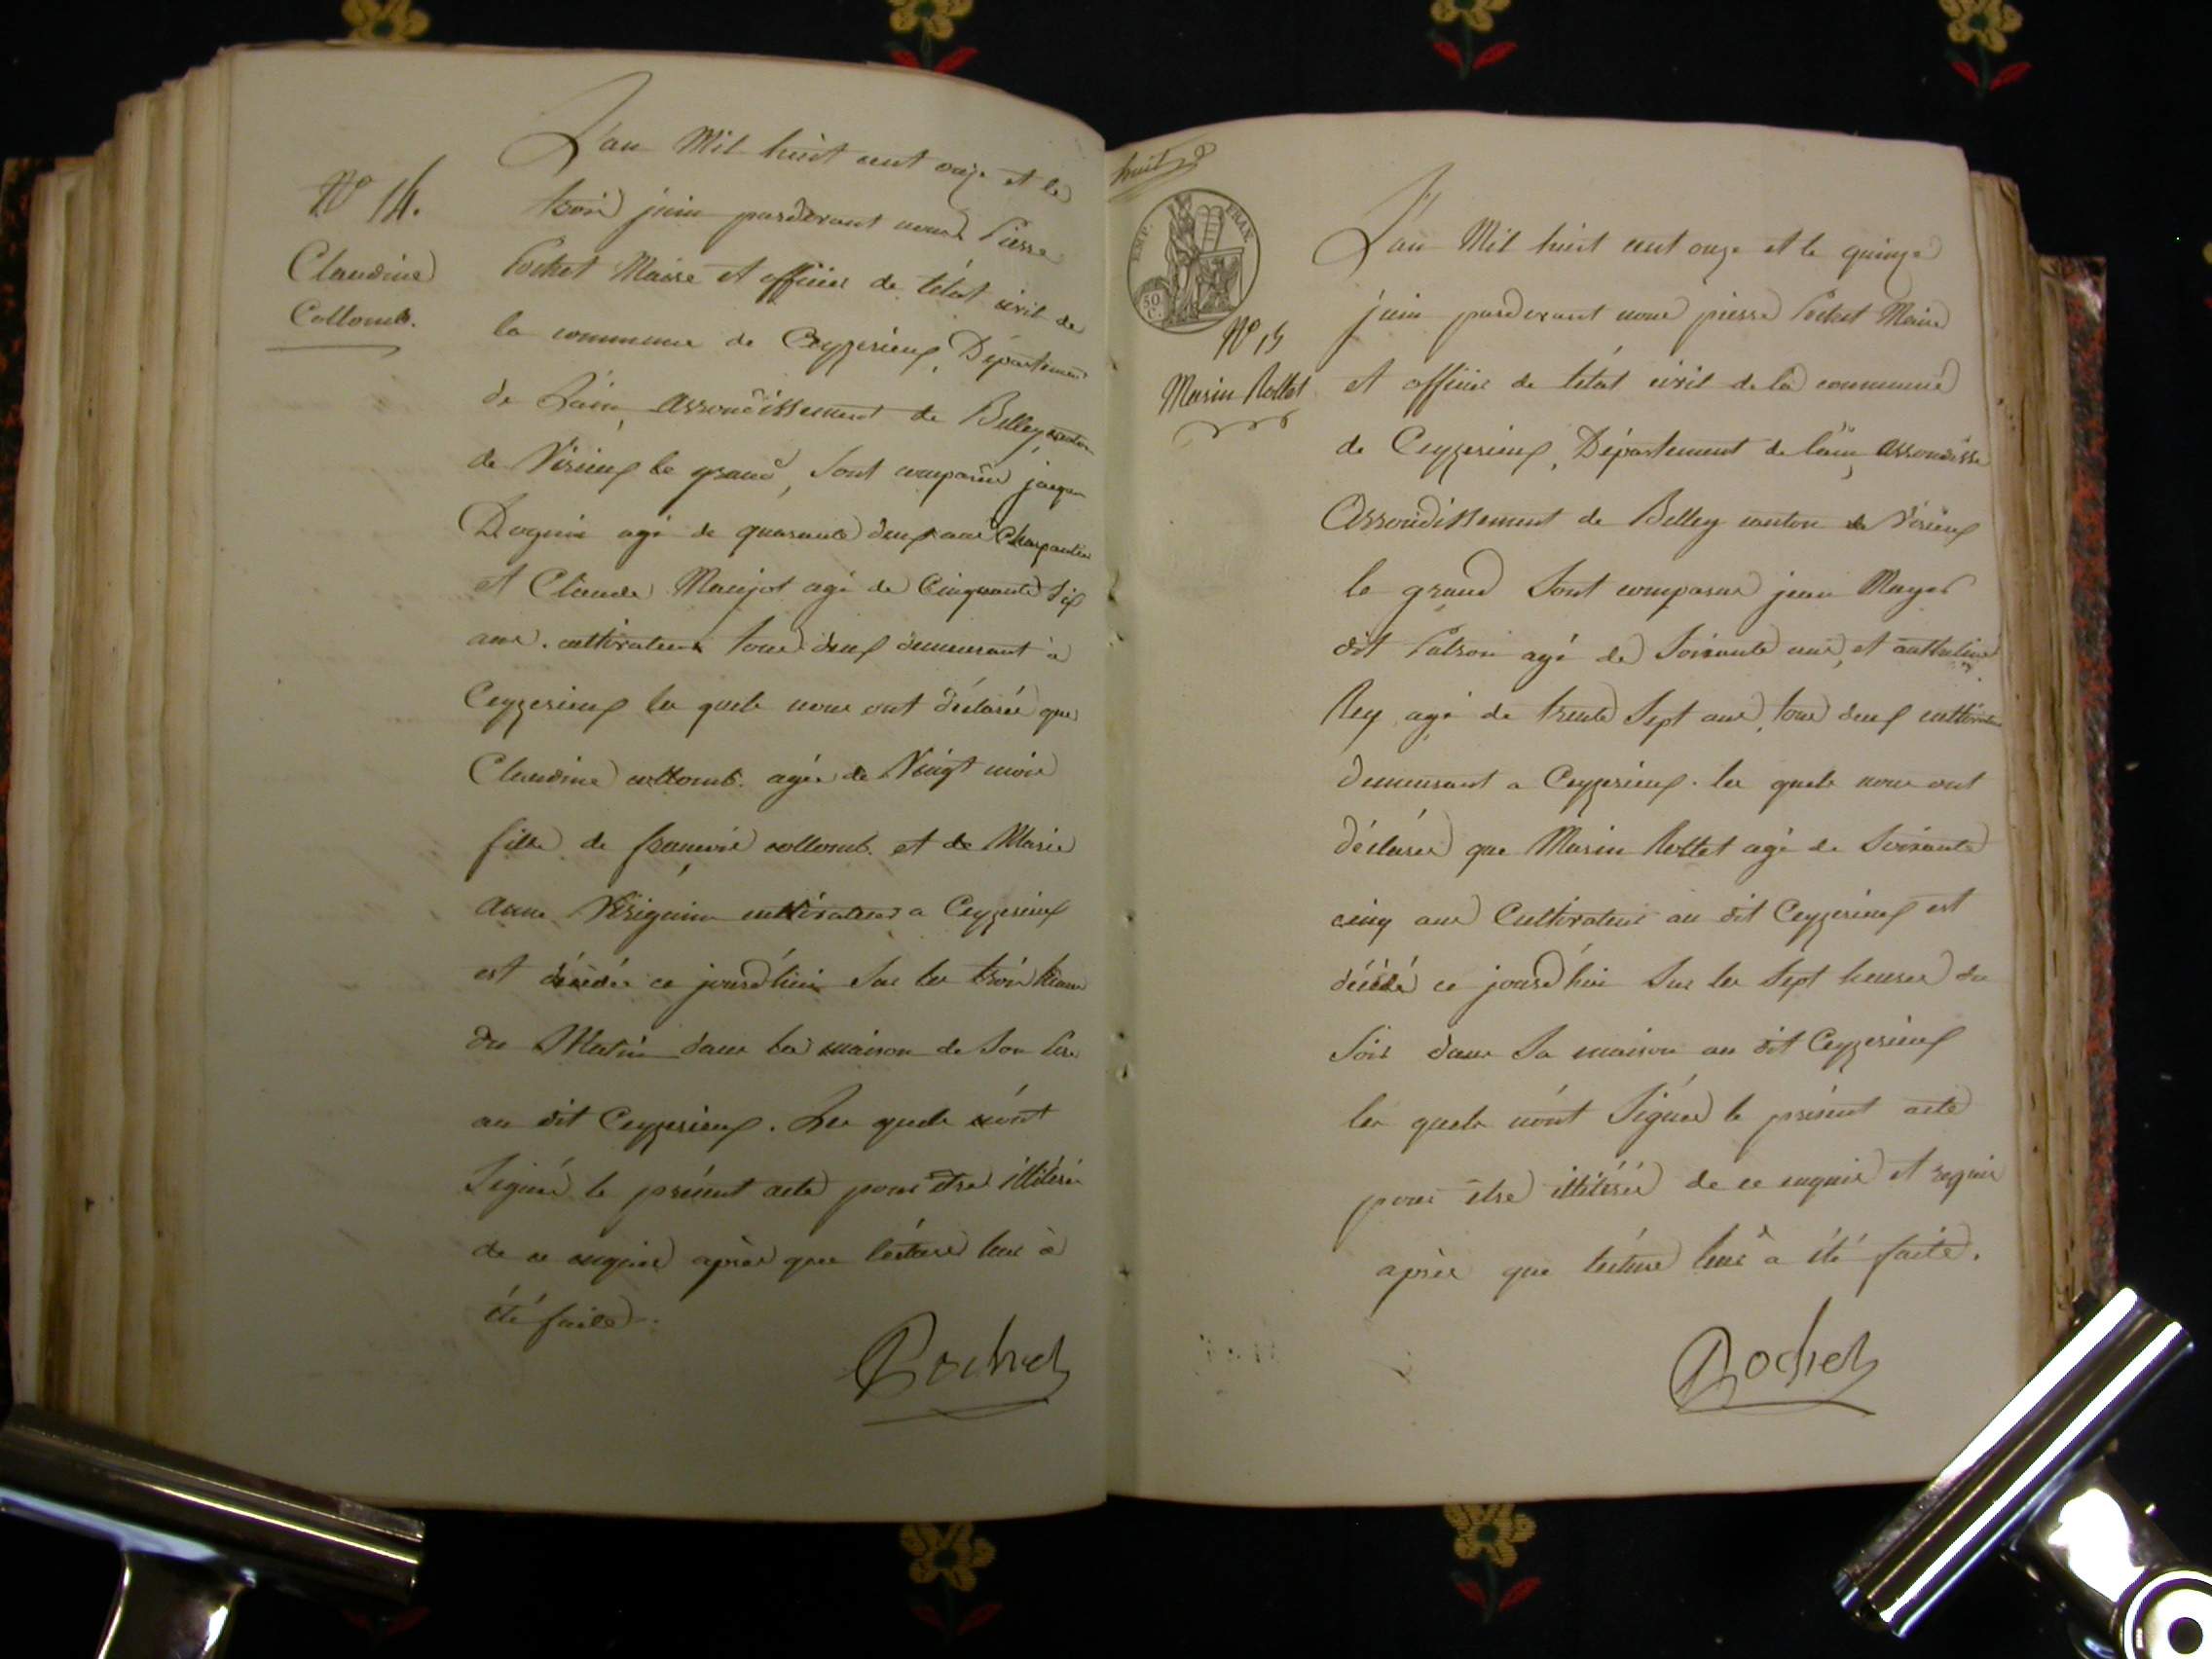 N° 14.
Claudine
Collomb.
L'an Mil huit cent onze et le
trois juin pardevant nous Pierre
Pochet Maire et officier de l'état civil de
la commune de Ceyzerieux, Département
de L'ain, arrondissement de Belley canton
de Virieux le grand, Sont comparus jacques
agé de quarante deux ans Charpentier
et Claude agé de Cinquante Six
ans. cultivateurs tous deux demeurant à
Ceyzerieux les quels nous ont déclarés que
Claudine collomb. agée de Vingt mois
fille de françois collomb. et de Marie
anne cultivateurs a Ceyzerieux
est décédée ce jourd'hui Sur les trois heures
du Matin dans la maison de Son Père
au dit Ceyzerieux. Les quels n'ont
Signés le présent acte pour être illitérés
de ce enquis après que lecture leur à
été faite.
Pochet
huit 8
EMP. FRAN.
50 C.
N° 15
Marin Rottet
L'an Mil huit cent onze et le quinze
juin pardevant nous pierre Pochet Maire
et officier de l'état civil de la commune
de Ceyzerieux, Département de l'ain, arrondisse
Arrondissement de Belley canton de Virieux
le grand Sont comparus jean
dit agé de Soixante ans, et anthelme
Rey agé de trente Sept ans, tous deux cultivateurs
demeurant a Ceyzerieux. les quels nous ont
déclarés que Marin Rottet agé de Soixante
cinq ans Cultivateur au dit Ceyzerieux est
décédé ce jourd'hui Sur les Sept heures du
Soir dans Sa maison au dit Ceyzerieux
les quels n'ont Signés le présent acte
pour être illitérés de ce enquis et requis
après que lecture leur a été faite.
Pochet